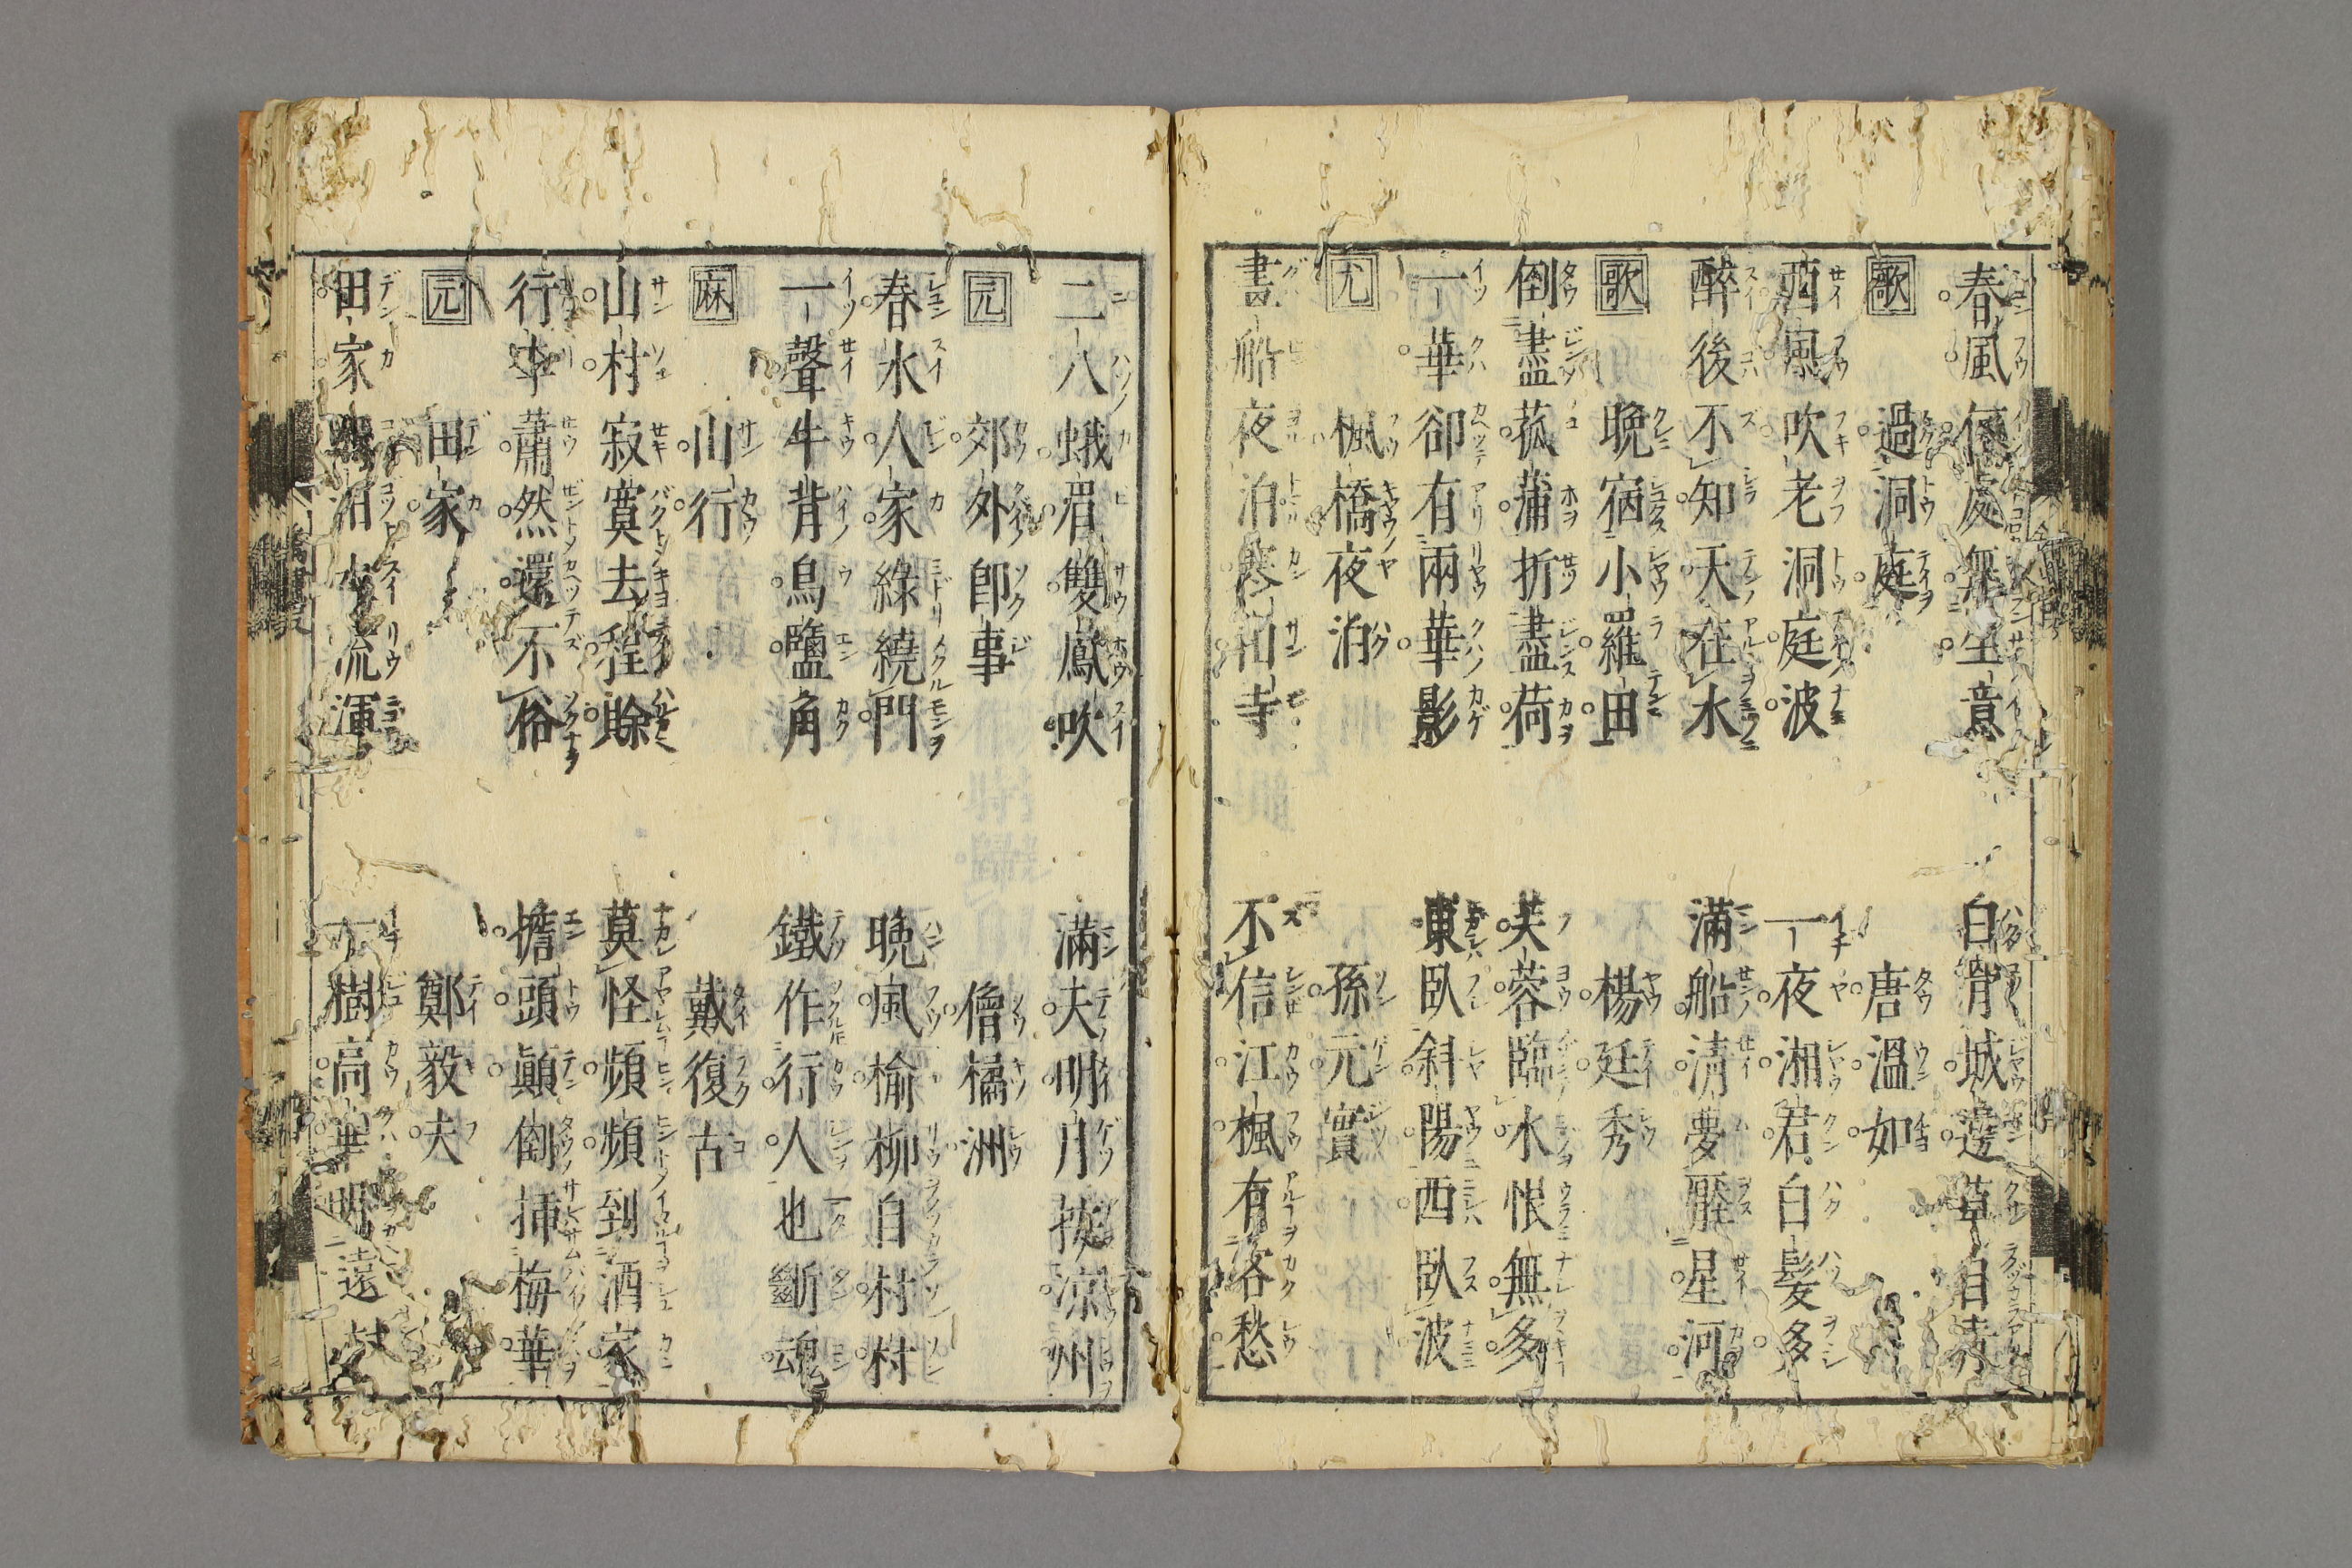 春風何處無生意
白骨城邊草自青
歌
過洞庭
唐溫如
西風吹老洞庭波
一夜湘君白髮多
醉後不知天在水
滿船清夢壓星河
歌
晩宿小羅田
楊廷秀
倒盡菰蒲折盡荷
芙蓉臨水恨無多
一華卻有兩華影
東臥斜陽西臥波
尤
楓橋夜泊
孫元實
畫船夜泊寒山寺
不信江楓有客愁
二八蛾眉雙鳳吹
滿天明月按涼州
元
郊外卽事
僧橘洲
春水人家綠繞門
晩風楡柳自村村
一聲牛背烏鹽角
鐵作行人也斷魂
麻
山行
戴復古
山村寂寞去程賖
莫怪頻頻到酒家
行李蕭然還不俗
擔頭顚倒揷梅華
元
田家
鄭毅夫
田家汨汨水流渾
一樹高華明遠村